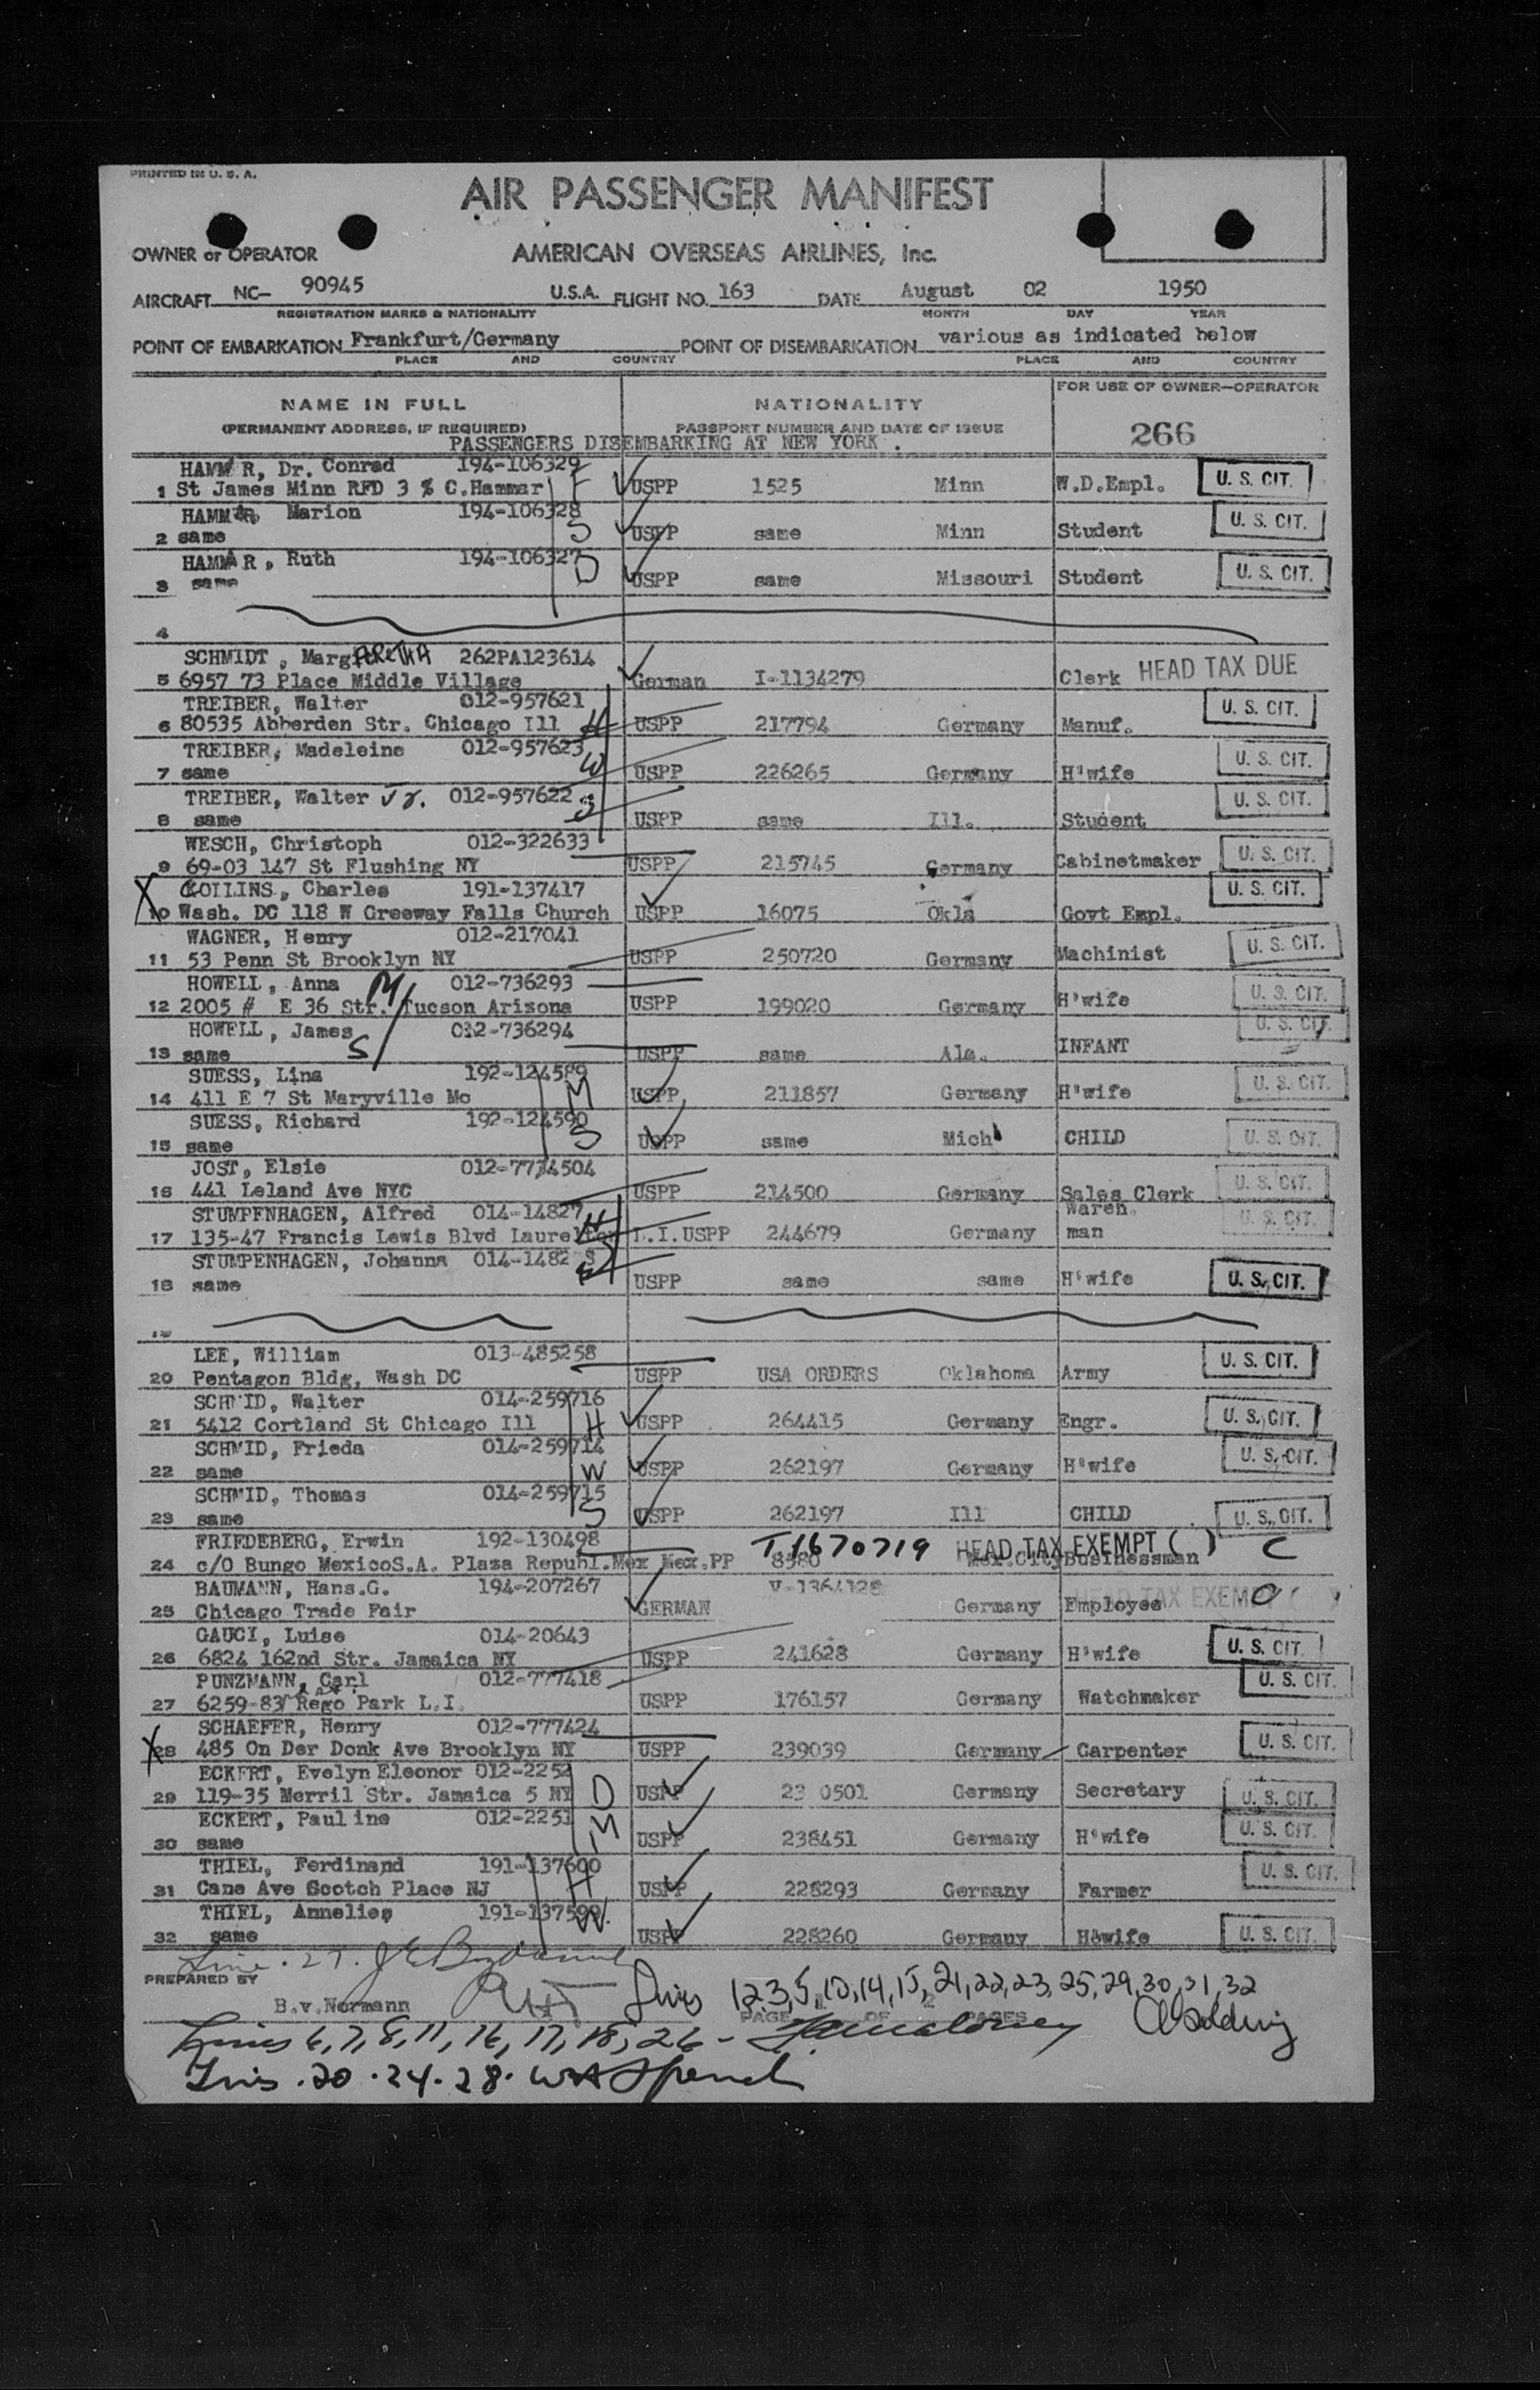 PRINTED IN U. S. A.
AIR PASSENGER MANIFEST
OWNER or OPERATOR AMERICAN OVERSEAS AIRLINES, Inc.
AIRCRAFT NC- 90945 U.S.A. FLIGHT NO. 163 DATE August 02 1950
REGISTRATION MARKS & NATIONALITY MONTH DAY YEAR
POINT OF EMBARKATION Frankfurt/Germany POINT OF DISEMBARKATION various as indicated below
PLACE AND COUNTRY PLACE AND COUNTRY
NAME IN FULL NATIONALITY FOR USE OF OWNER-OPERATOR
(PERMANENT ADDRESS, IF REQUIRED) PASSPORT NUMBER AND DATE OF ISSUE 266
PASSENGERS DISEMBARKING AT NEW YORK .
HAMMAR, Dr. Conrad 194-106329 F
1 St James Minn RFD 3 % C.Hammar USPP 1525 Minn W.D.Empl. U. S. CIT.
HAMMAR, Marion 194-106328 S
2 same USPP same Minn Student U. S. CIT.
HAMMAR, Ruth 194-106327 D
3 same USPP same Missouri Student U. S. CIT.
4
SCHMIDT , MargARETHA 262PA123614
5 6957 73 Place Middle Village German I-1134279 Clerk HEAD TAX DUE
TREIBER, Walter 012-957621
6 80535 Abberden Str. Chicago Ill H USPP 217794 Germany Manuf. U. S. CIT.
TREIBER, Madeleine 012-957623
7 same W USPP 226265 Germany H'wife U. S. CIT.
TREIBER, Walter Jr. 012-957622
8 same S USPP same Ill. Student U. S. CIT.
WESCH, Christoph 012-322633
9 69-03 147 St Flushing NY USPP 215745 Germany Cabinetmaker U. S. CIT.
X COLLINS, Charles 191-137417
10 Wash. DC 118 W Greeway Falls Church USPP 16075 Okla Govt Empl. U. S. CIT.
WAGNER, Henry 012-217041
11 53 Penn St Brooklyn NY USPP 250720 Germany Machinist U. S. CIT.
HOWELL, Anna M 012-736293
12 2005 # E 36 Str. Tucson Arizona USPP 199020 Germany H'wife U. S. CIT.
HOWELL, James S 012-736294
13 same USPP same Ala. INFANT U. S. CIT.
SUESS, Lina 192-124589 M
14 411 E 7 St Maryville Mo USPP 211857 Germany H'wife U. S. CIT.
SUESS, Richard 192-124590 S
15 same USPP same Mich CHILD U. S. CIT.
JOST, Elsie 012-7774504
16 441 Leland Ave NYC USPP 214500 Germany Sales Clerk U. S. CIT.
STUMPENHAGEN, Alfred 014-14827 H Waren.
17 135-47 Francis Lewis Blvd Laurelton L.I.USPP 244679 Germany man U. S. CIT.
STUMPENHAGEN, Johanna 014-14828 W
18 same USPP same same H'wife U. S. CIT.
19
LEE, William 013-485258
20 Pentagon Bldg, Wash DC USPP USA ORDERS Oklahoma Army U. S. CIT.
SCHMID, Walter 014-259716
21 5412 Cortland St Chicago Ill H USPP 264415 Germany Engr. U. S. CIT.
SCHMID, Frieda 014-259714
22 same W USPP 262197 Germany H'wife U. S. CIT.
SCHMID, Thomas 014-259715
23 same S USPP 262197 Ill CHILD U. S. CIT.
FRIEDEBERG, Erwin 192-130498 T1670719 HEAD TAX EXEMPT ( ) C
24 c/O Bungo MexicoS.A. Plaza Republ.Mex Mex.PP 8580 Mex.City Businessman
BAUMANN, Hans.G. 194-207267 V-1364128
25 Chicago Trade Fair GERMAN Germany Employee HEAD TAX EXEMPT ( )
GAUCI, Luise 014-20643
26 6824 162nd Str. Jamaica NY USPP 241628 Germany H'wife U. S. CIT.
PUNZMANN, Carl 012-777418
27 6259-83 Rego Park L.I. USPP 176157 Germany Watchmaker U. S. CIT.
X SCHAEFER, Henry 012-777424
28 485 On Der Donk Ave Brooklyn NY USPP 239039 Germany Carpenter U. S. CIT.
ECKERT, Evelyn Eleonor 012-2252
29 119-35 Merril Str. Jamaica 5 NY D USPP 23 0501 Germany Secretary U. S. CIT.
ECKERT, Pauline 012-2251
30 same M USPP 238451 Germany H'wife U. S. CIT.
THIEL, Ferdinand 191-137600
31 Cane Ave Scotch Place NJ H USPP 228293 Germany Farmer U. S. CIT.
THIEL, Annelies 191-137599 W.
32 same USPP 228260 Germany H'wife U. S. CIT.
Line . 27.
PREPARED BY
B.v.Normann Lines 1,2,3,5,10,14,15,21,22,23,25,29,30,31,32
PAGE 2 OF 2 PAGES
Lines 6,7,8,11,16,17,18,26 -
Lins . 20 . 24 . 28 .